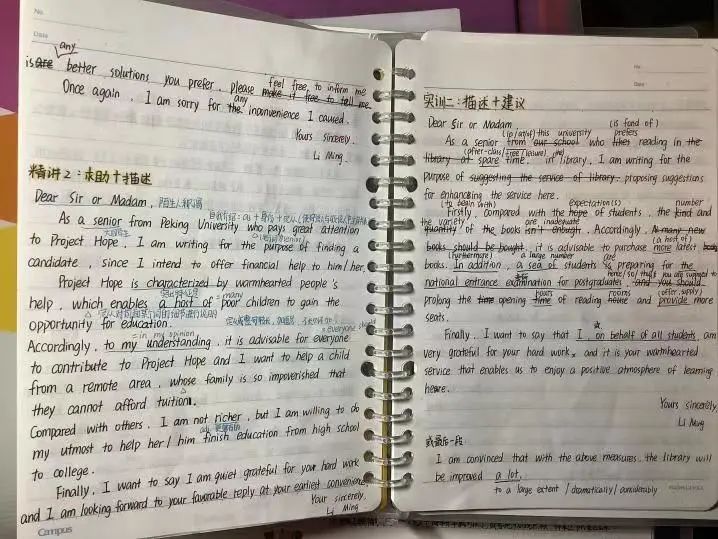 No.
Date
any
is are better solutions you prefer, please make it free to tell me
feel free to inform me
Once again, I am sorry for the inconvenience I caused.
any
Yours sincerely,
Li Ming.
精讲2：求助+描述
Dear Sir or Madam, 陌生人称呼
As a senior from Peking University who pays great attention
to Project Hope, I am writing for the purpose of finding a
candidate, since I intend to offer financial help to him/her.
Project Hope is characterized by warmhearted people's
help, which enables a host of poor children to gain the
= many
opportunity for education.
= in my opinion
= everyone
Accordingly, to my understanding, it is advisable for everyone
to contribute to Project Hope and I want to help a child
from a remote area, whose family is so impoverished that
they cannot afford tuition.
Compared with others, I am not richer, but I am willing to do
my utmost to help her/him finish education from high school
to college.
Finally, I want to say I am quiet grateful for your hard work
and I am looking forward to your favorable reply at your earliest convenience
Your sincerely,
Li Ming
Campus
No.
Date
实训二：描述+建议
Dear Sir or Madam,
(is fond of)
this university
prefers
As a senior from our school who likes reading in the
(after-class/free/leisure)
library at spare time. in library, I am writing for the
purpose of suggesting the service of library. proposing suggestions
for enhancing the service here.
(to begin with)
expectation(s)
number
Firstly, compared with the hope of students, the kind and
the variety
are inadequate
quantity of the books isn't enough. Accordingly, As many new
(a host of)
books should be bought, it is advisable to purchase more latest
(Furthermore)
a large number
are
books. In addition, a sea of students is preparing for the
national entrance examination for postgraduates, and you should
rooms
(offer, supply)
prolong the time opening time of reading house and provide more
seats.
Finally, I want to say that I, on behalf of all students, am
very grateful for your hard work, and it is your warmhearted
service that enables us to enjoy a positive atmosphere of learning
here.
Yours sincerely,
Li Ming
或最后一段：
I am convinced that with the above measures, the library will
be improved a lot.
to a large extent / dramatically / considerably